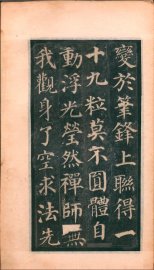 變於筆鋒上聯得一
十九粒莫不圓體自
動浮光瑩然禪師無
我觀身了空求法先